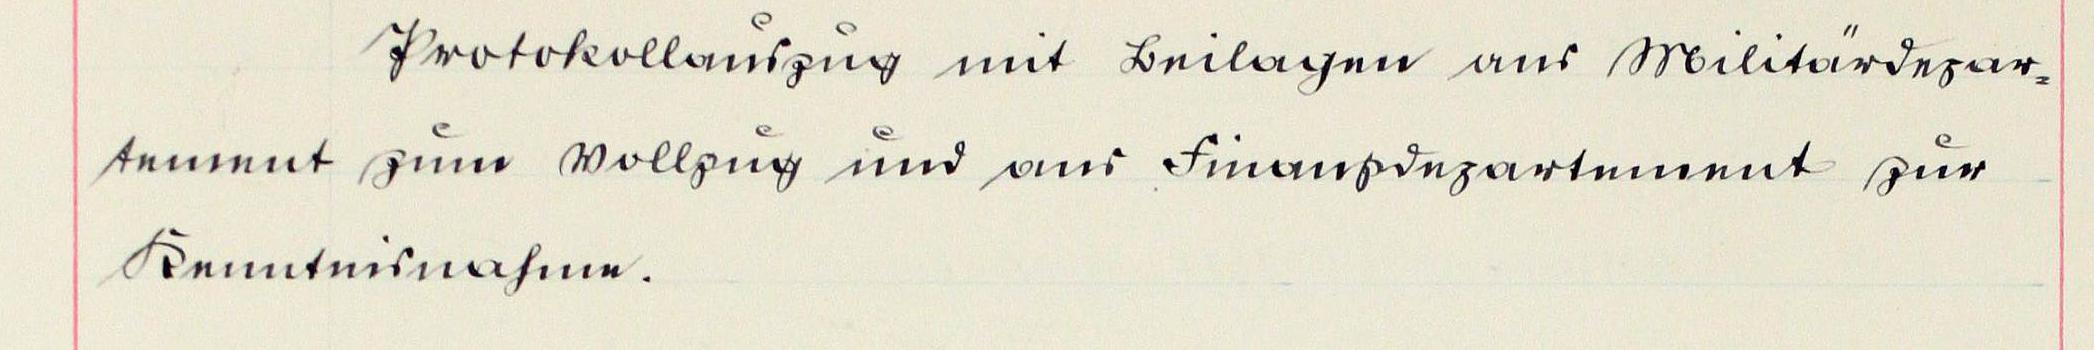 Protokollauszug mit Beilagen ans Militärdepar-
tement zum Vollzug und ans Finanzdepartement zur
Kenntnisnahme.